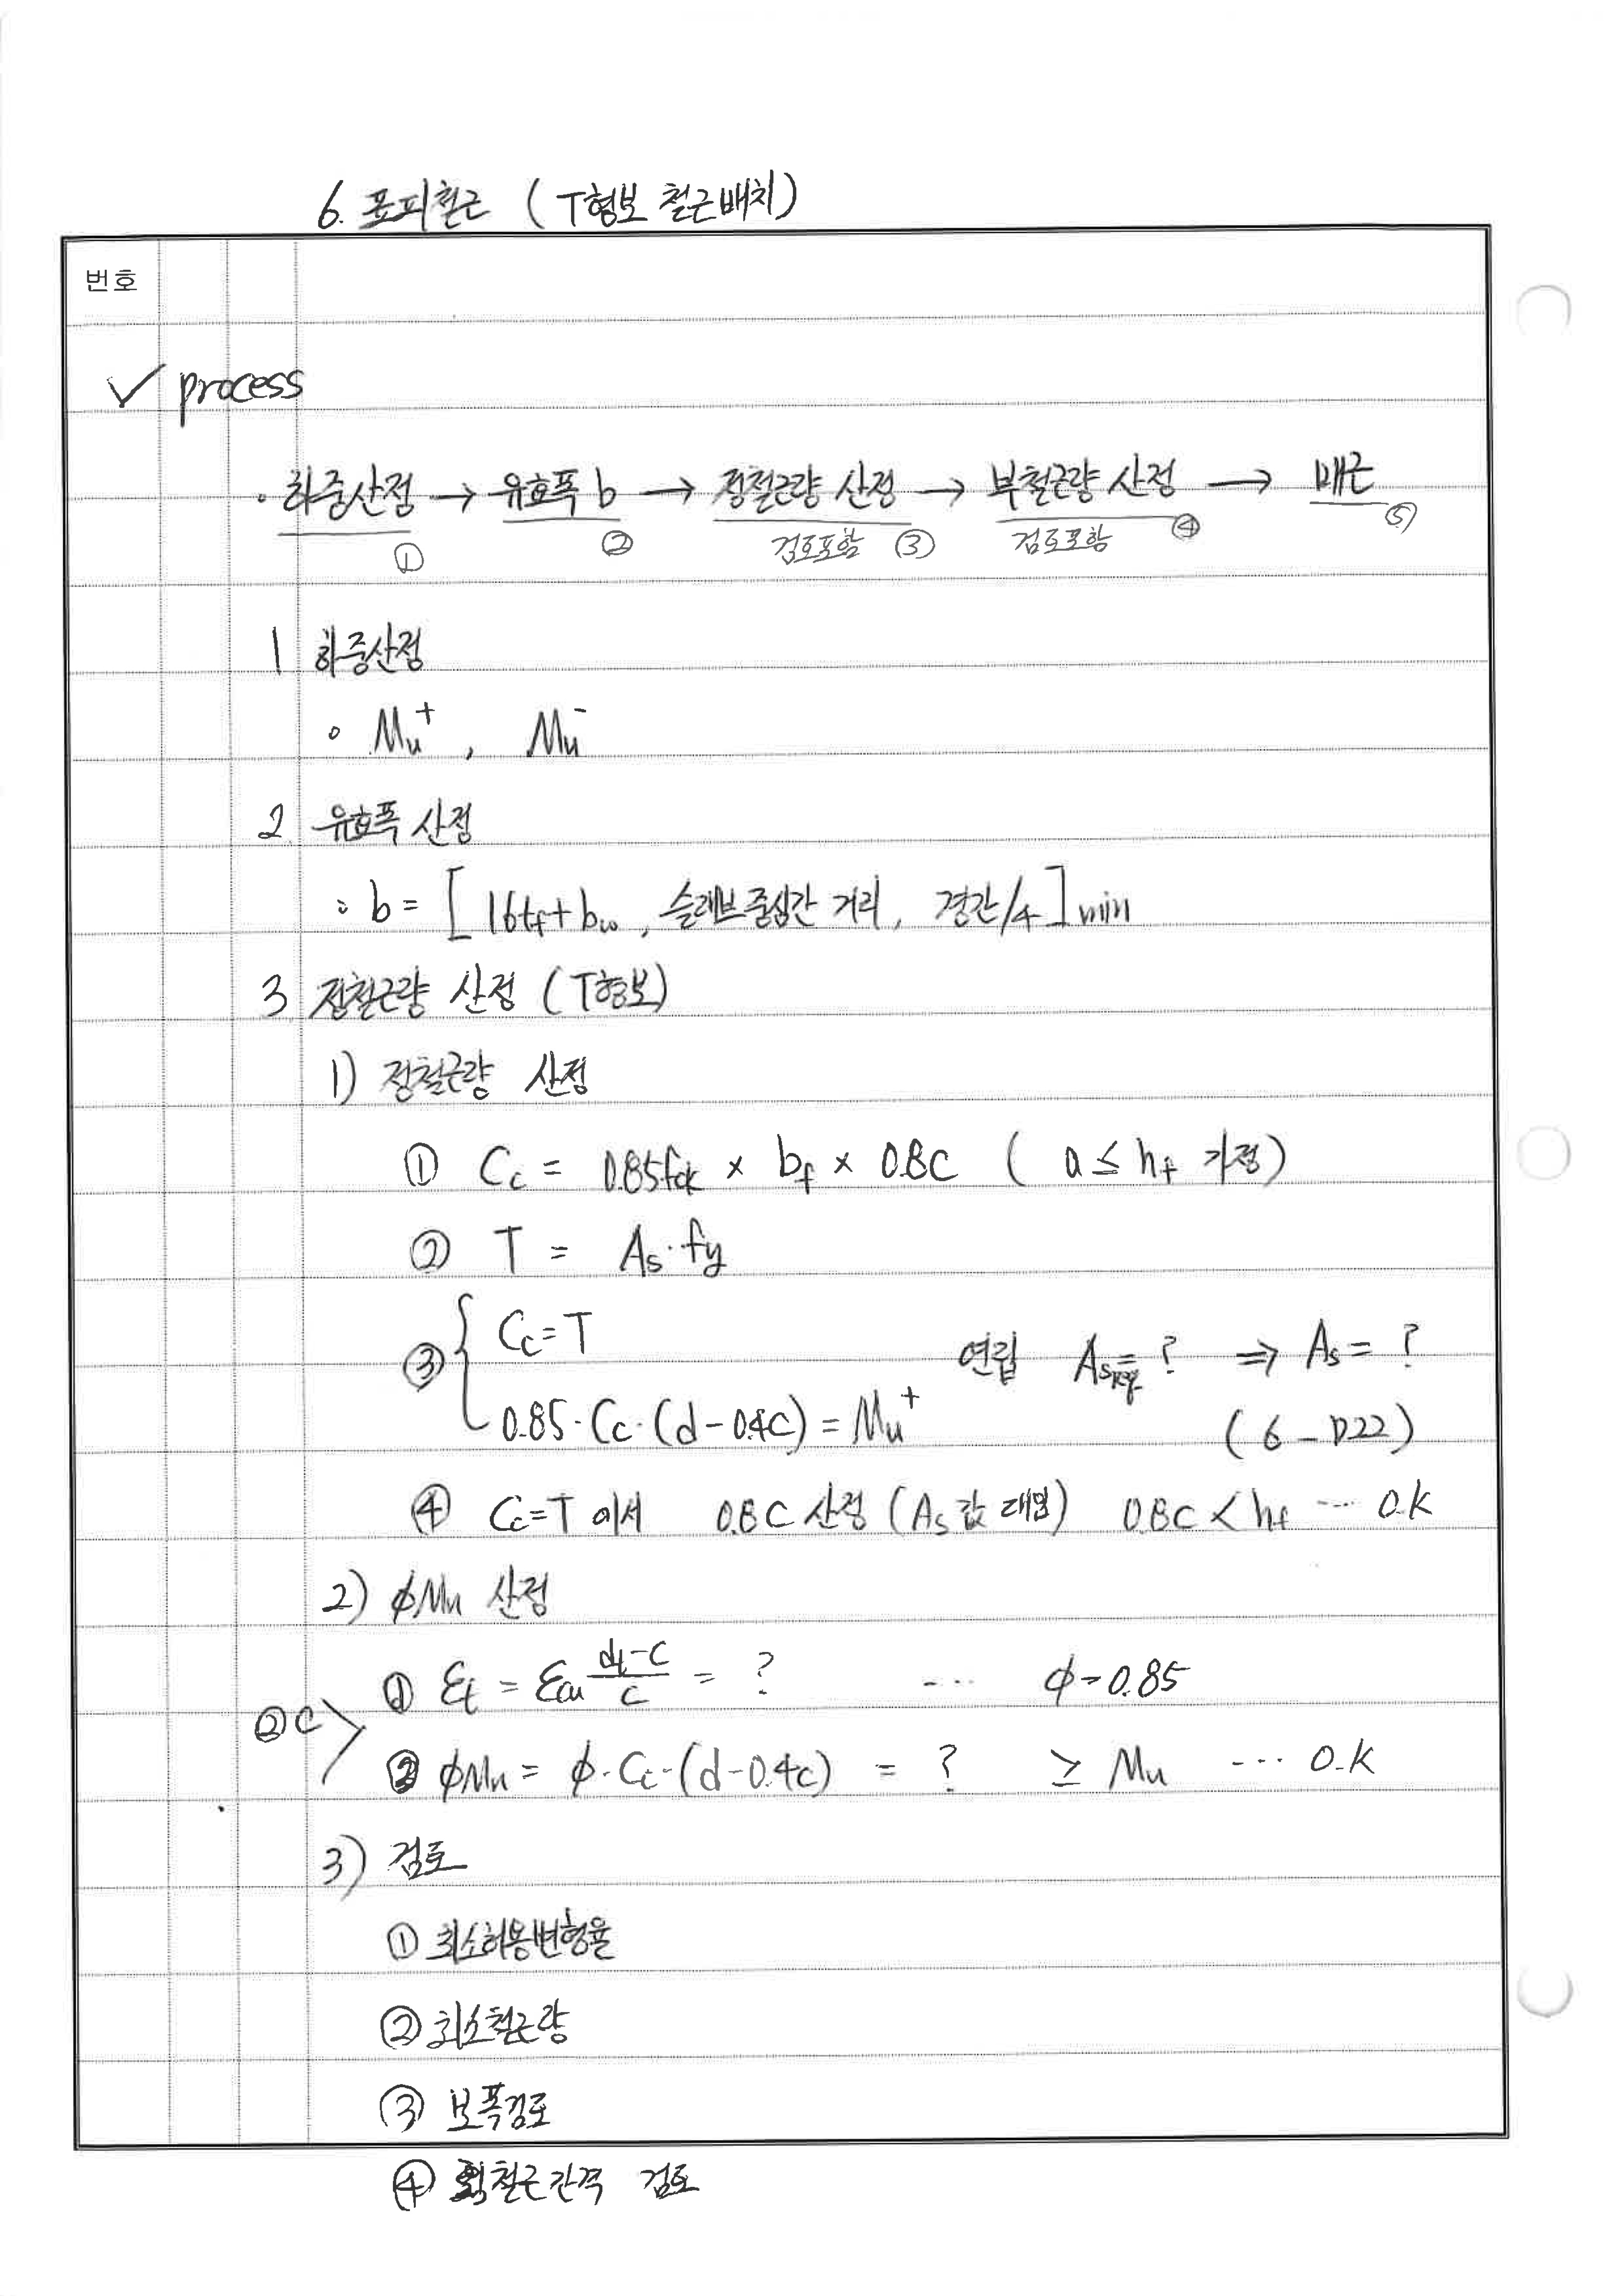 6. 표피철근 (T형보 철근배치)
번호
✓ process
· 하중산정 → 유효폭 b → 정철근량 산정 → 부철근량 산정 → 배근
① ② 검토포함 ③ 검토포함 ④ ⑤
1 하중산정
∘ Mu⁺, Mu⁻
2. 유효폭 산정
: b = [16tf+bw, 슬래브중심간 거리, 경간/4]min
3. 정철근량 산정 (T형보)
1) 정철근량 산정
① Cc = 0.85fck × bf × 0.8C ( a ≤ hf 가정)
② T = As·fy
③ { Cc=T
0.85·Cc·(d-0.4C) = Mu⁺
연립 As,req = ? ⇒ As = ?
(6-D22)
④ Cc=T 에서 0.8C 산정 (As값 대입) 0.8C < hf ··· O.K
2) ϕMn 산정
① εt = εcu (dt-C)/C = ? ··· ϕ=0.85
② C >
② ϕMn = ϕ·Cc·(d-0.4C) = ? ≥ Mu ··· O.K
3) 검토
① 최소허용변형율
② 최소철근량
③ 보폭검토
④ 철근간격 검토